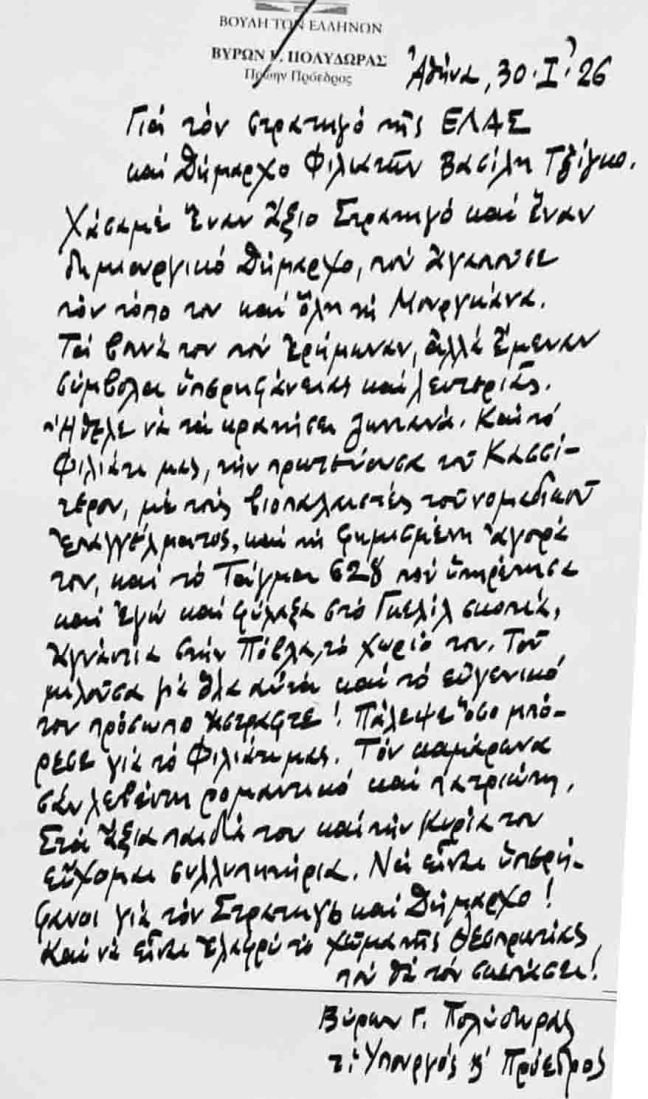 ΒΟΥΛΗ ΤΩΝ ΕΛΛΗΝΩΝ
ΒΥΡΩΝ Γ. ΠΟΛΥΔΩΡΑΣ
Πρώην Πρόεδρος
Ἀθήνα, 30·Ι·26
Γιά τόν στρατηγό τῆς ΕΛΑΣ
καί Δήμαρχο Φιλιατῶν Βασίλη Τζίγκο.
Χάσαμε ἕναν ἄξιο Στρατηγό καί ἕναν
δημιουργικό Δήμαρχο, πού ἀγαποῦσε
τόν τόπο του καί ὅλη τή Μουργκάνα.
Τά βουνά του πού ἐρήμωναν, ἀλλά ἔμεναν
σύμβολα ὑπερηφάνειας καί λευτεριᾶς.
Ἤθελε νά τά κρατήσει ζωντανά. Καί τό
Φιλιάτι μας, τήν πρωτεύουσα τοῦ Κασσί-
τερου, μέ τούς βιοπαλαιστές τοῦ νομαδικοῦ
ἐπαγγέλματος, καί τή φημισμένη ἀγορά
του, καί τό Τάγμα 628 πού ὑπηρέτησα
καί ἐγώ καί φύλαξα στό Γκελίλ σκοπιά,
ἀγνάντια στήν Πόβλα, τό χωριό του. Τοῦ
μιλοῦσα γιά ὅλα αὐτά καί τό εὐγενικό
του πρόσωπο ἄστραφτε! Πάλεψε ὅσο μπό-
ρεσε γιά τό Φιλιάτι μας. Τόν καμάρωνα
σάν λεβέντη ρομαντικό καί πατριώτη.
Στά ἄξια παιδιά του καί τήν Κυρία του
εὔχομαι συλλυπητήρια. Νά εἶναι ὑπερή-
φανοι γιά τόν Στρατηγό καί Δήμαρχο!
Καί νά εἶναι ἐλαφρύ τό χῶμα τῆς Θεσπρωτίας
πού θά τόν σκεπάσει!
Βύρων Γ. Πολύδωρας
τ. Ὑπουργός κ' Πρόεδρος